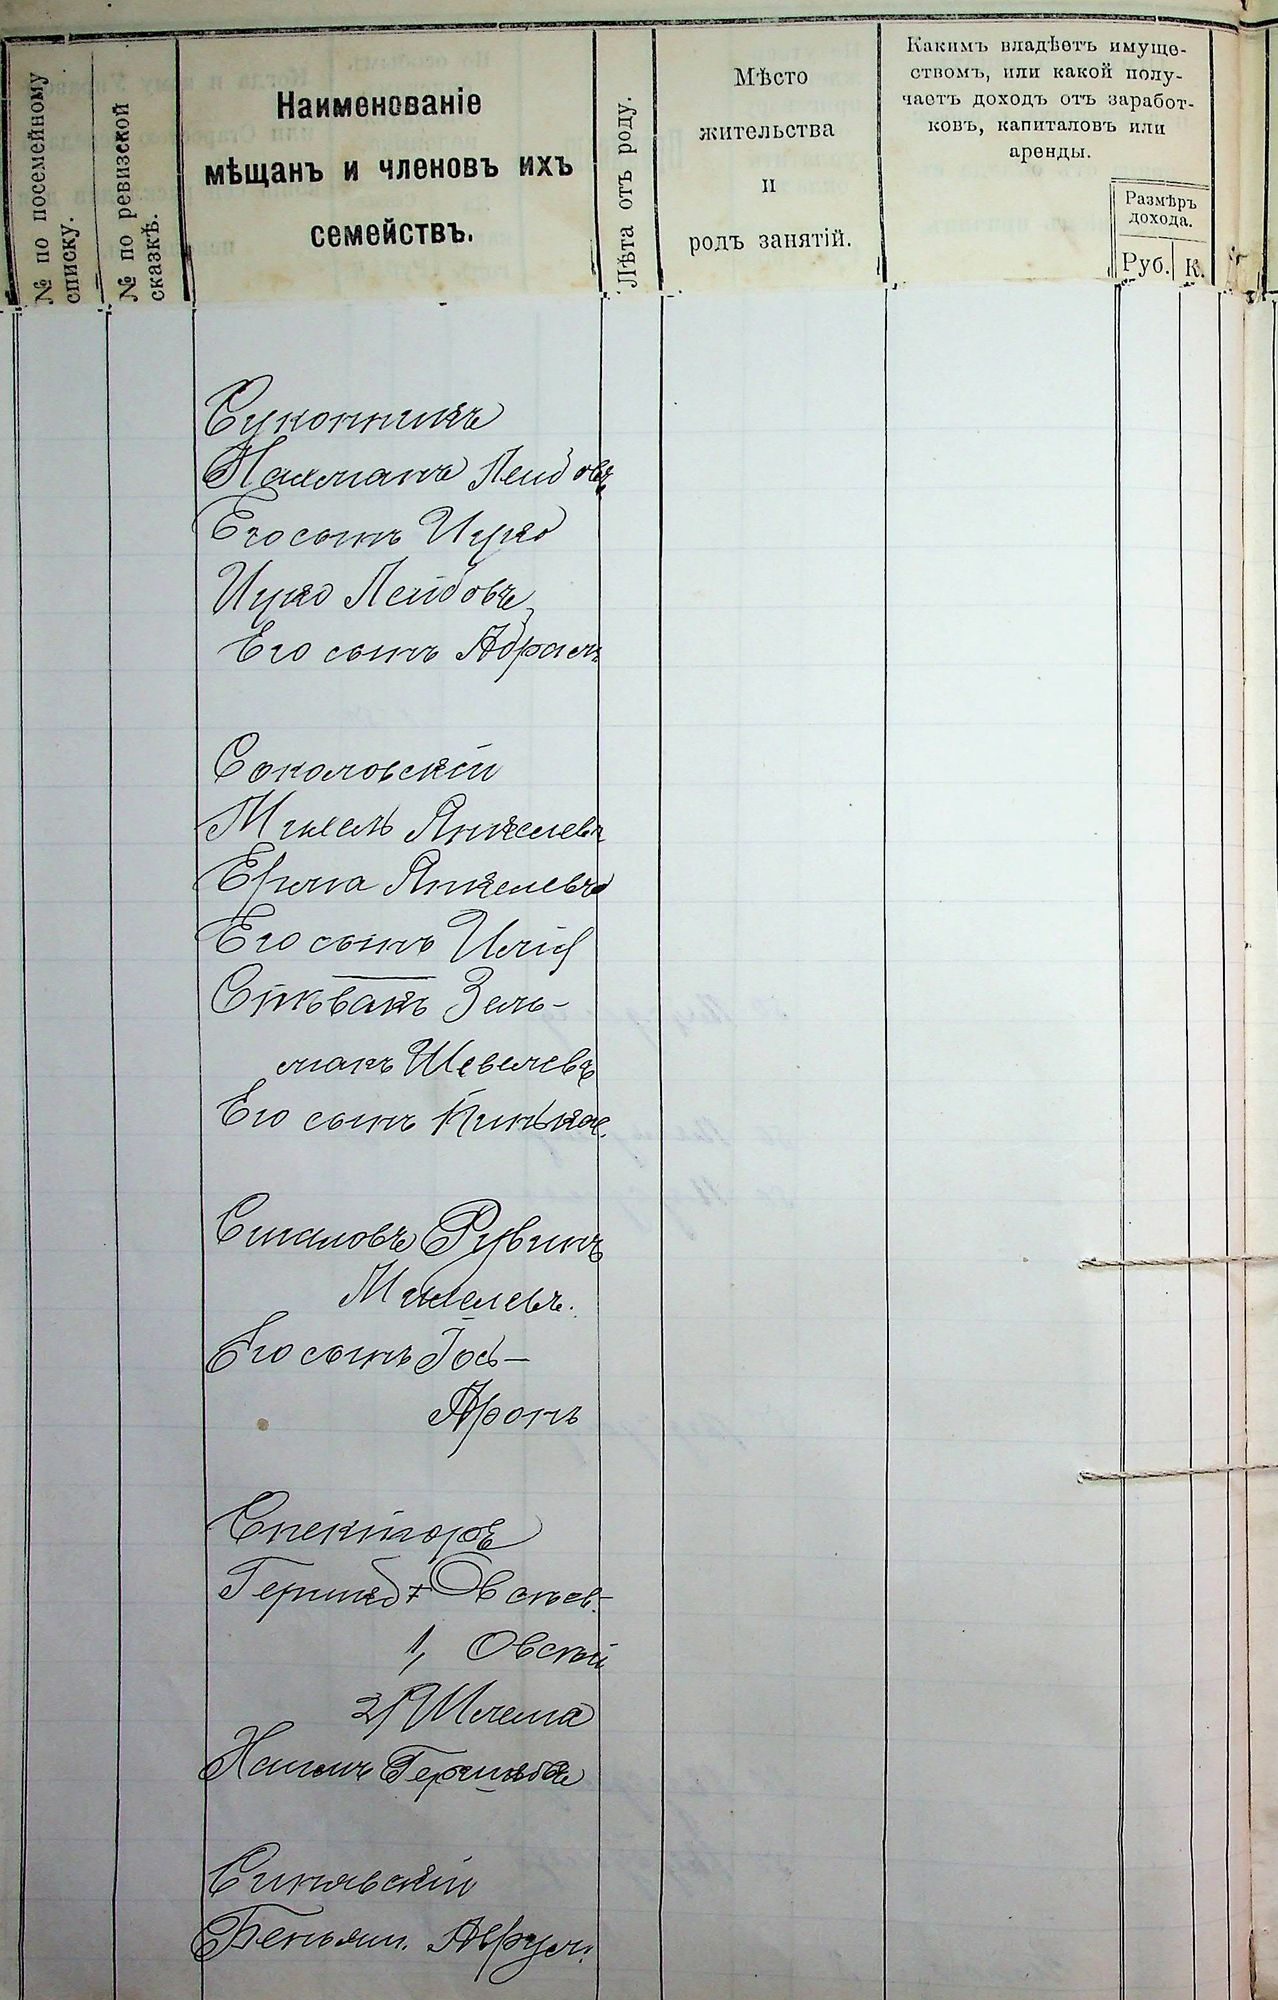 № по посемейному
списку.
№ по ревизской
сказкѣ.
Наименованіе
мѣщанъ и членовъ ихъ
семействъ.
Лѣта отъ роду.
Мѣсто
жительства
и
родъ занятій.
Какимъ владѣетъ имуще-
ствомъ, или какой полу-
чаетъ доходъ отъ заработ-
ковъ, капиталовъ или
аренды.
Размѣръ
дохода.
Руб.
К.
Суконникъ
Нахманъ Лейбовъ
Его сынъ Ицко
Ицко Лейбовъ
Его сынъ Абрамъ
Соколовскій
Михель Янкелевъ
Ерма Янкелевъ
Его сынъ
Зель-
манъ Шевелевъ
Его сынъ
Сигаловъ Рувинъ
Михелевъ.
Его сынъ Іось-
Аронъ
Спекторъ
Гершко Овсѣев.
1, Овсѣй
2, Шлема
Хаимъ Гершковъ
Синявскій
Беньям. Аврум.